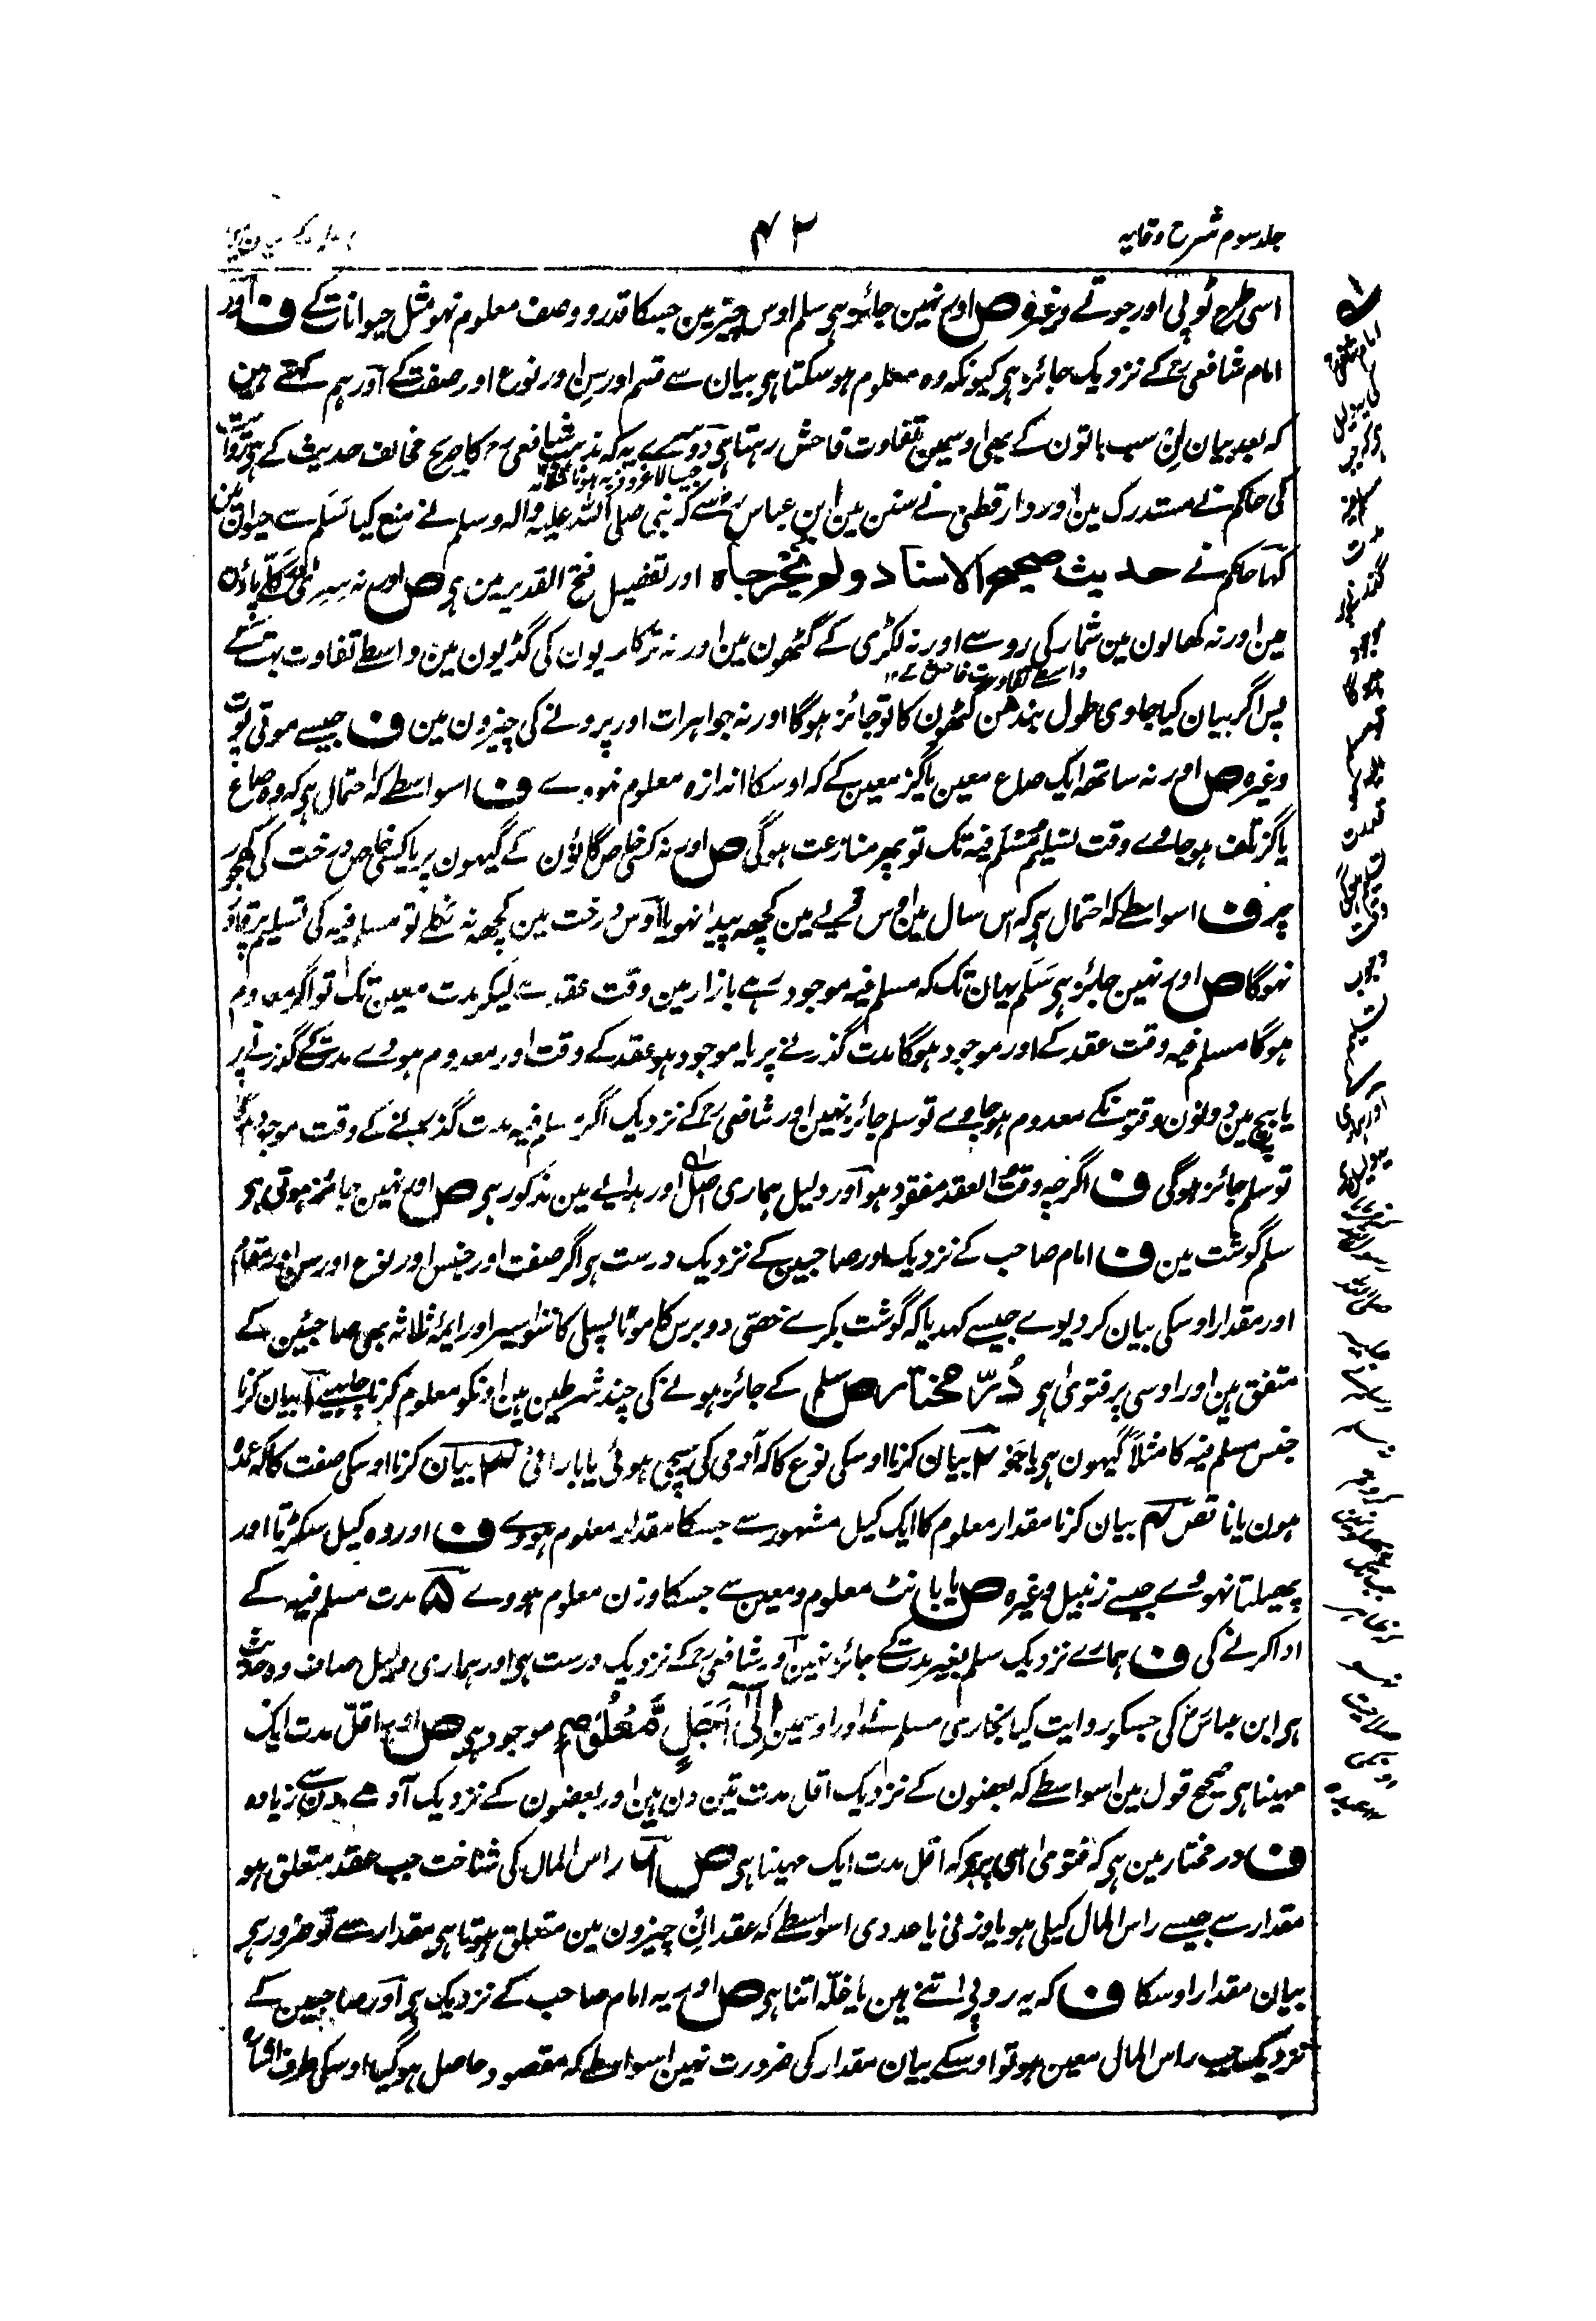 جلد سوم شرح وقایہ
۴۲
اسی طرح ٹوپی اور جوتے وغیرہ ص اور نہین جائز ہی سلم اوس چیز مین جسکا قدر و وصف معلوم نہو مثل حیوانات کے ف اور
امام شافعی رح کے نزدیک جائز ہی کیونکہ وہ معلوم ہو سکتا ہی بیان سے قسم اور سن اور نوع اور صفت کے اور ہم کہتے ہین
کہ بعد بیان ان سب باتون کے بھی اوسمین تفاوت فاحش رہتا ہی دوسرے یہ کہ مذہب شافعی رح کا صریح مخالف حدیث کے ہی روایت
کی حاکم نے مستدرک مین اور دارقطنی نے سنن مین ابن عباس رض سے کہ نبی صلی اللہ علیہ وآلہ وسلم نے منع کیا سلم سے حیوان مین
کہا حاکم نے حدیث صحیح الاسناد ولم یخرجاہ اور تفصیل فتح القدیر مین ہی ص اور نہ سری کلے پاؤن
مین اور نہ کھالون مین شمار کی رو سے اور نہ لکڑی کے گٹھون مین اور نہ ترکاریون کی گڈیون مین واسطے تفاوت بہت کے
پس اگر بیان کیا جاوی طول بندھن گٹھون کا تو جائز ہوگا اور نہ جواہرات اور پرونے کی چیزون مین ف جیسے موتی پوت
وغیرہ ص اور نہ ساتھ ایک صاع معین یا گز معین کے کہ اوسکا اندازہ معلوم نہووے ف اسواسطے کہ احتمال ہی کہ وہ صاع
یا گز تلف ہو جاوے وقت تسلیم مسلم فیہ تک تو پھر منازعت ہوگی ص اور نہ کسی خاص گاؤن کے گیہون پر یا کسی خاص درخت کی کھجور
پر ف اسواسطے کہ احتمال ہی کہ اس سال مین اوس قریے مین کچھ پیدا نہو یا اوس درخت مین کچھ نہ نکلے تو مسلم فیہ کی تسلیم پر قادر
نہوگا ص اور نہین جائز ہی سلم یہان تک کہ مسلم فیہ موجود رہے بازار مین وقت عقد سے لیکر مدت معین تک تو اگر معدوم
ہوگا مسلم فیہ وقت عقد کے اور موجود ہوگا مدت گذرنے پر یا موجود ہو عقد کے وقت اور معدوم ہووے مدت کے گذرنے پر
یا بیچ مین دونون وقتونکے معدوم ہو جاوے تو سلم جائز نہین اور شافعی رح کے نزدیک اگر مسلم فیہ مدت گذرنے کے وقت موجود ہوگا
تو سلم جائز ہوگی ف اگرچہ وقت العقد مفقود ہو اور دلیل ہماری اصل اور ہدایے مین مذکور ہی ص اور نہین جائز ہوتی ہی
سلم گوشت مین ف امام صاحب کے نزدیک اور صاحبین کے نزدیک درست ہی اگر صفت اور جنس اور نوع اور سن اور مقام
اور مقدار اوسکی بیان کر دیوے جیسے کہدیا کہ گوشت بکرے خصی دو برس کا موٹا پسلی کا سو سیر اور ایمۂ ثلاثہ بھی صاحبین کے
متفق ہین اور اوسی پر فتویٰ ہی درّ مختار ص سلم کے جائز ہونے کی چند شرطین ہین اونکو معلوم کرنا چاہیے ۱ بیان کرنا
جنس مسلم فیہ کا مثلاً گیہون ہی یا جو ۲ بیان کرنا اوسکی نوع کا کہ آدمی کی سینچی ہوئی یا بارانی ۳ بیان کرنا اوسکی صفت کا کہ عمدہ
ہون یا ناقص ۴ بیان کرنا مقدار معلوم کا ایک کیل مشہور سے جسکا مقدار معلوم ہووے ف اور وہ کیل سکڑتا اور
پھیلتا نہووے جیسے زنبیل وغیرہ ص یا بانٹ معلوم و معین سے جسکا وزن معلوم ہووے ۵ مدت مسلم فیہ کے
ادا کرنے کی ف ہمارے نزدیک سلم بغیر مدت کے جائز نہین اور شافعی رح کے نزدیک درست ہی اور ہماری دلیل صاف وہ حدیث
ہی ابن عباس رض کی جسکو روایت کیا بخاری مسلم نے اور اوسمین اِلٰی اَجَلٍ مَّعْلُوْمٍ موجود ہی ص اور اقل مدت ایک
مہینا ہی صحیح قول مین اسواسطے کہ بعضون کے نزدیک اقل مدت تین دن ہین اور بعضون کے نزدیک آدھے دن سے زیادہ
ف در مختار مین ہی کہ فتویٰ اسی پر ہی کہ اقل مدت ایک مہینا ہی ص ۶ راس المال کی شناخت جب عقد متعلق ہو
مقدار سے جیسے راس المال کیلی ہو یا وزنی یا عددی اسواسطے کہ عقد ان چیزون مین متعلق ہوتا ہی مقدار سے تو ضرور ہی
بیان مقدار اوسکا ف کہ یہ روپی اتنے ہین یا غلّہ اتنا ہی ص اور یہ امام صاحب کے نزدیک ہی اور صاحبین کے
نزدیک جب راس المال معین ہو تو اوسکے بیان مقدار کی ضرورت نہین اسواسطے کہ مقصود حاصل ہوگیا اوسکی طرف اشارہ